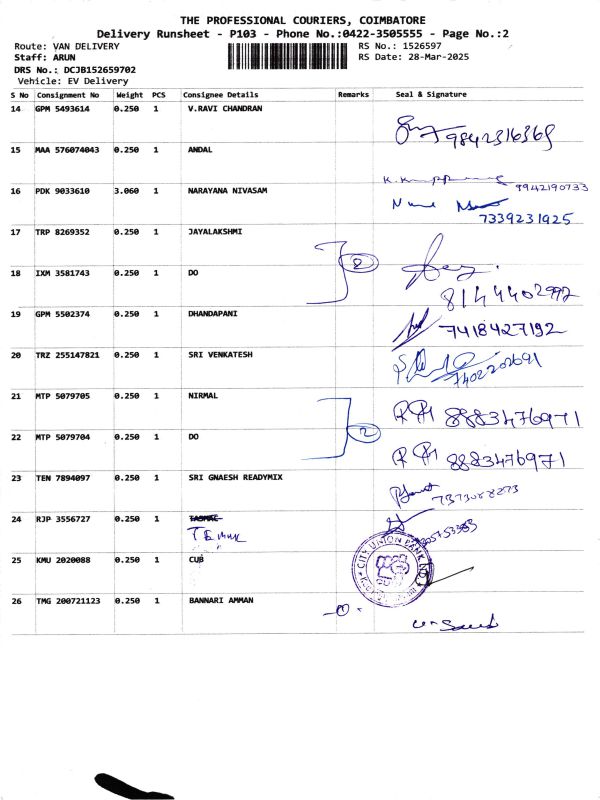 THE PROFESSIONAL COURIERS, COIMBATORE
Delivery Runsheet - P103 - Phone No.:0422-3505555 - Page No.:2
Route: VAN DELIVERY RS No.: 1526597
Staff: ARUN RS Date: 28-Mar-2025
DRS No.: DCJB152659702
Vehicle: EV Delivery
S No Consignment No Weight PCS Consignee Details Remarks Seal & Signature
14 GPM 5493614 0.250 1 V.RAVI CHANDRAN
9842316369
15 MAA 576074043 0.250 1 ANDAL
9942190733
16 PDK 9033610 3.060 1 NARAYANA NIVASAM
7339231925
17 TRP 8269352 0.250 1 JAYALAKSHMI
2
18 IXM 3581743 0.250 1 DO
8144402992
19 GPM 5502374 0.250 1 DHANDAPANI
7418427192
20 TRZ 255147821 0.250 1 SRI VENKATESH
7402202691
21 MTP 5079705 0.250 1 NIRMAL
8883476971
2
22 MTP 5079704 0.250 1 DO
8883476971
23 TEN 7894097 0.250 1 SRI GNAESH READYMIX
24 RJP 3556727 0.250 1 TASMAC
25 KMU 2020088 0.250 1 CUB
CITY UNION BANK
26 TMG 200721123 0.250 1 BANNARI AMMAN